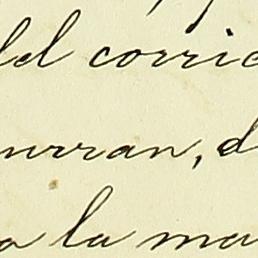 del corrie
urran, d
a la ma